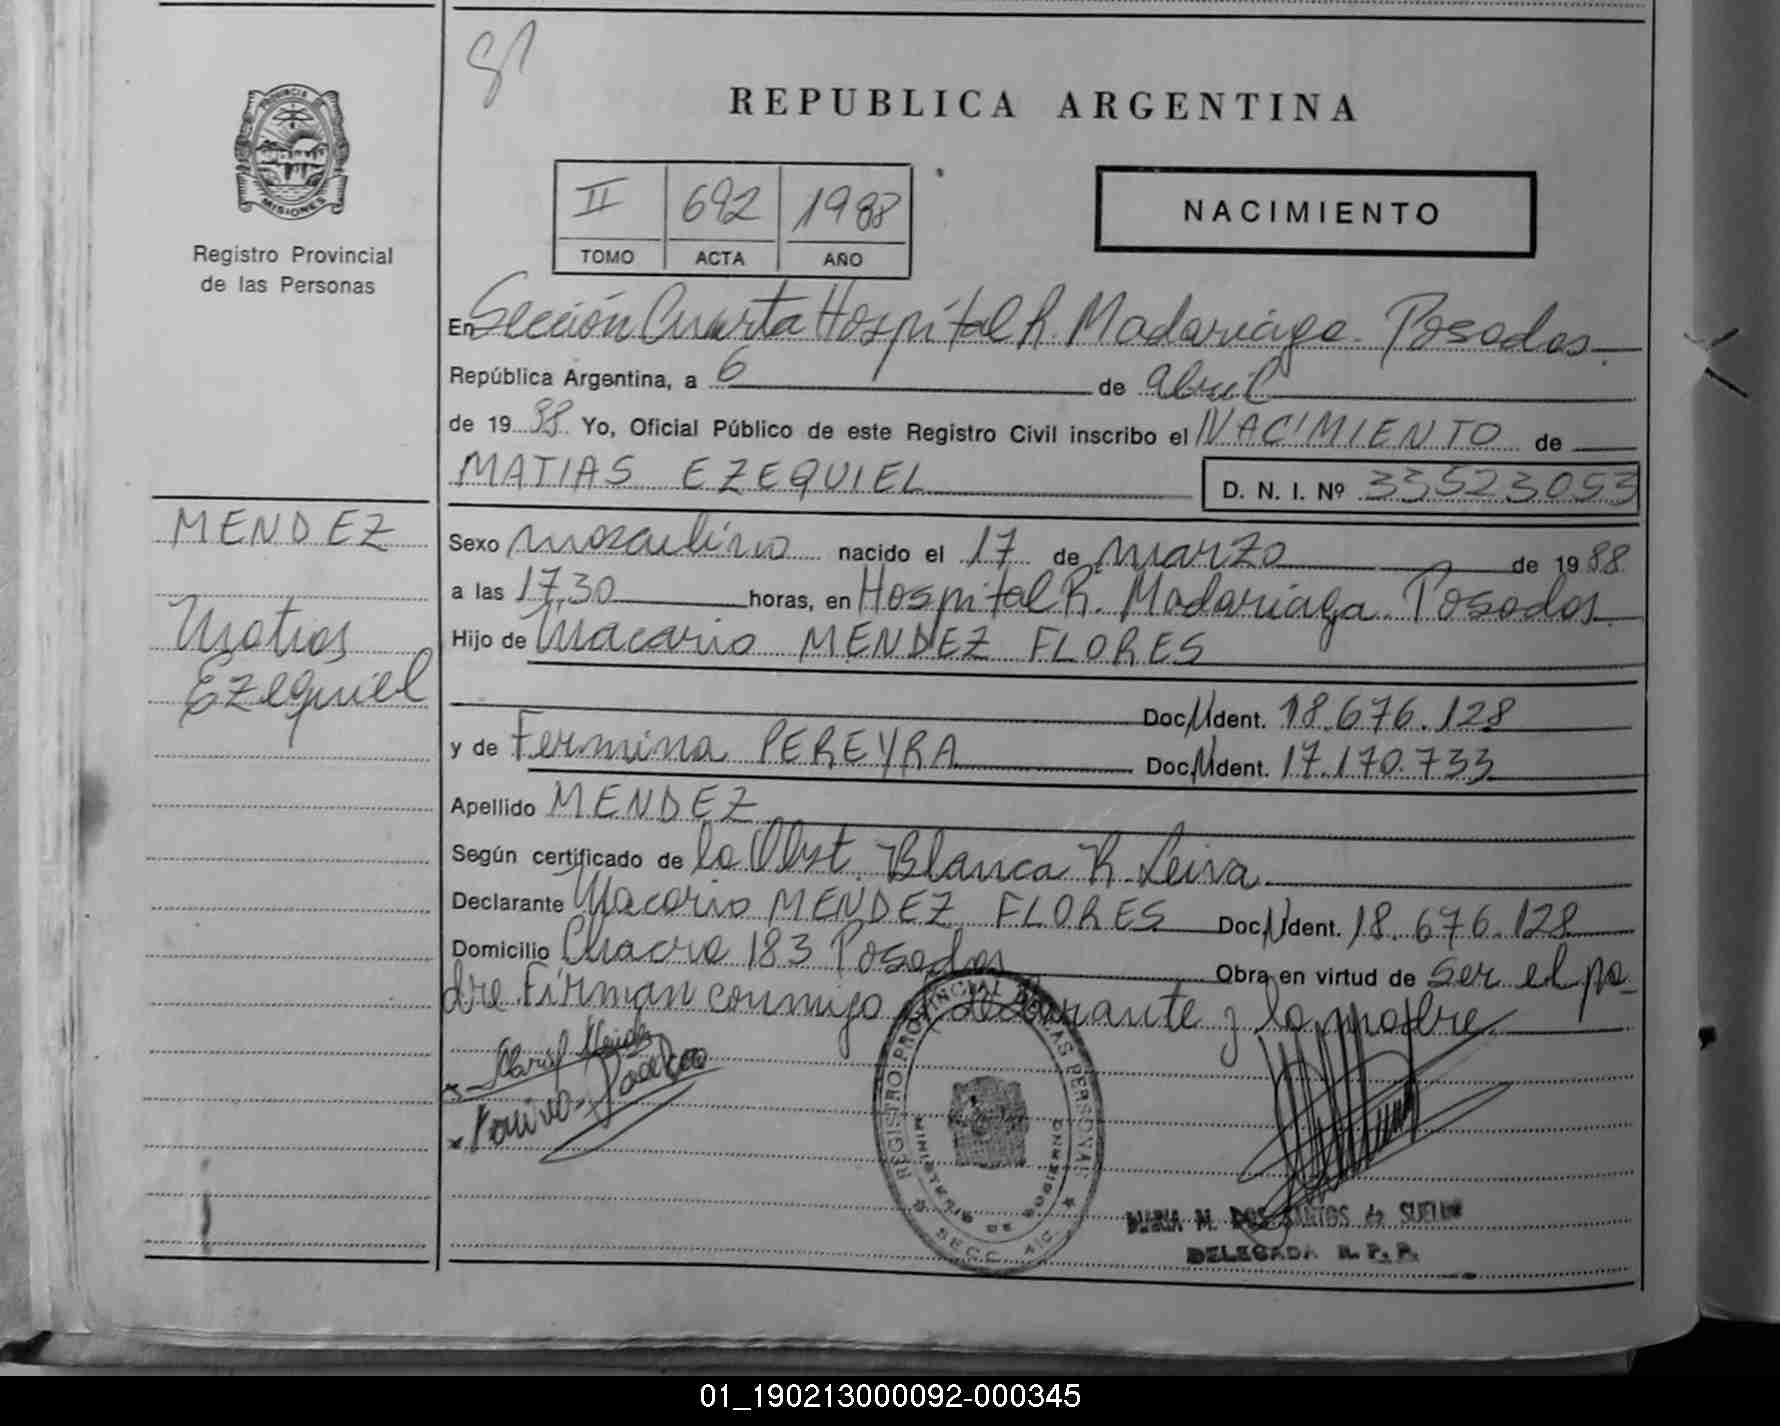 REPUBLICA ARGENTINA
PROVINCIA DE
MISIONES
Registro Provincial
de las Personas
II 692 1988
TOMO ACTA AÑO
NACIMIENTO
En Sección Cuarta Hospital R. Madariaga. Posadas.
República Argentina, a 6 de abril
de 1988 Yo, Oficial Público de este Registro Civil inscribo el NACIMIENTO de
MATIAS EZEQUIEL D. N. I. Nº 33523053
MENDEZ
Matias
Ezequiel
Sexo masculino nacido el 17 de marzo de 1988
a las 17,30 horas, en Hospital R. Madariaga Posadas.
Hijo de Macario MENDEZ FLORES
Doc. Ident. 18.676.128
y de Fermina PEREYRA Doc. Ident. 17.170.733
Apellido MENDEZ
Según certificado de la Obst. Blanca R. Leiva
Declarante Macario MENDEZ FLORES Doc. Ident. 18.676.128
Domicilio Chacra 183 Posadas Obra en virtud de ser el pa-
dre. Firman conmigo el declarante y la madre
REGISTRO PROVINCIAL DE LAS PERSONAS
MINISTERIO DE GOBIERNO
SECC. 4ta
MARIA M. DOS SANTOS de
DELEGADA R. P. P.
01_190213000092-000345